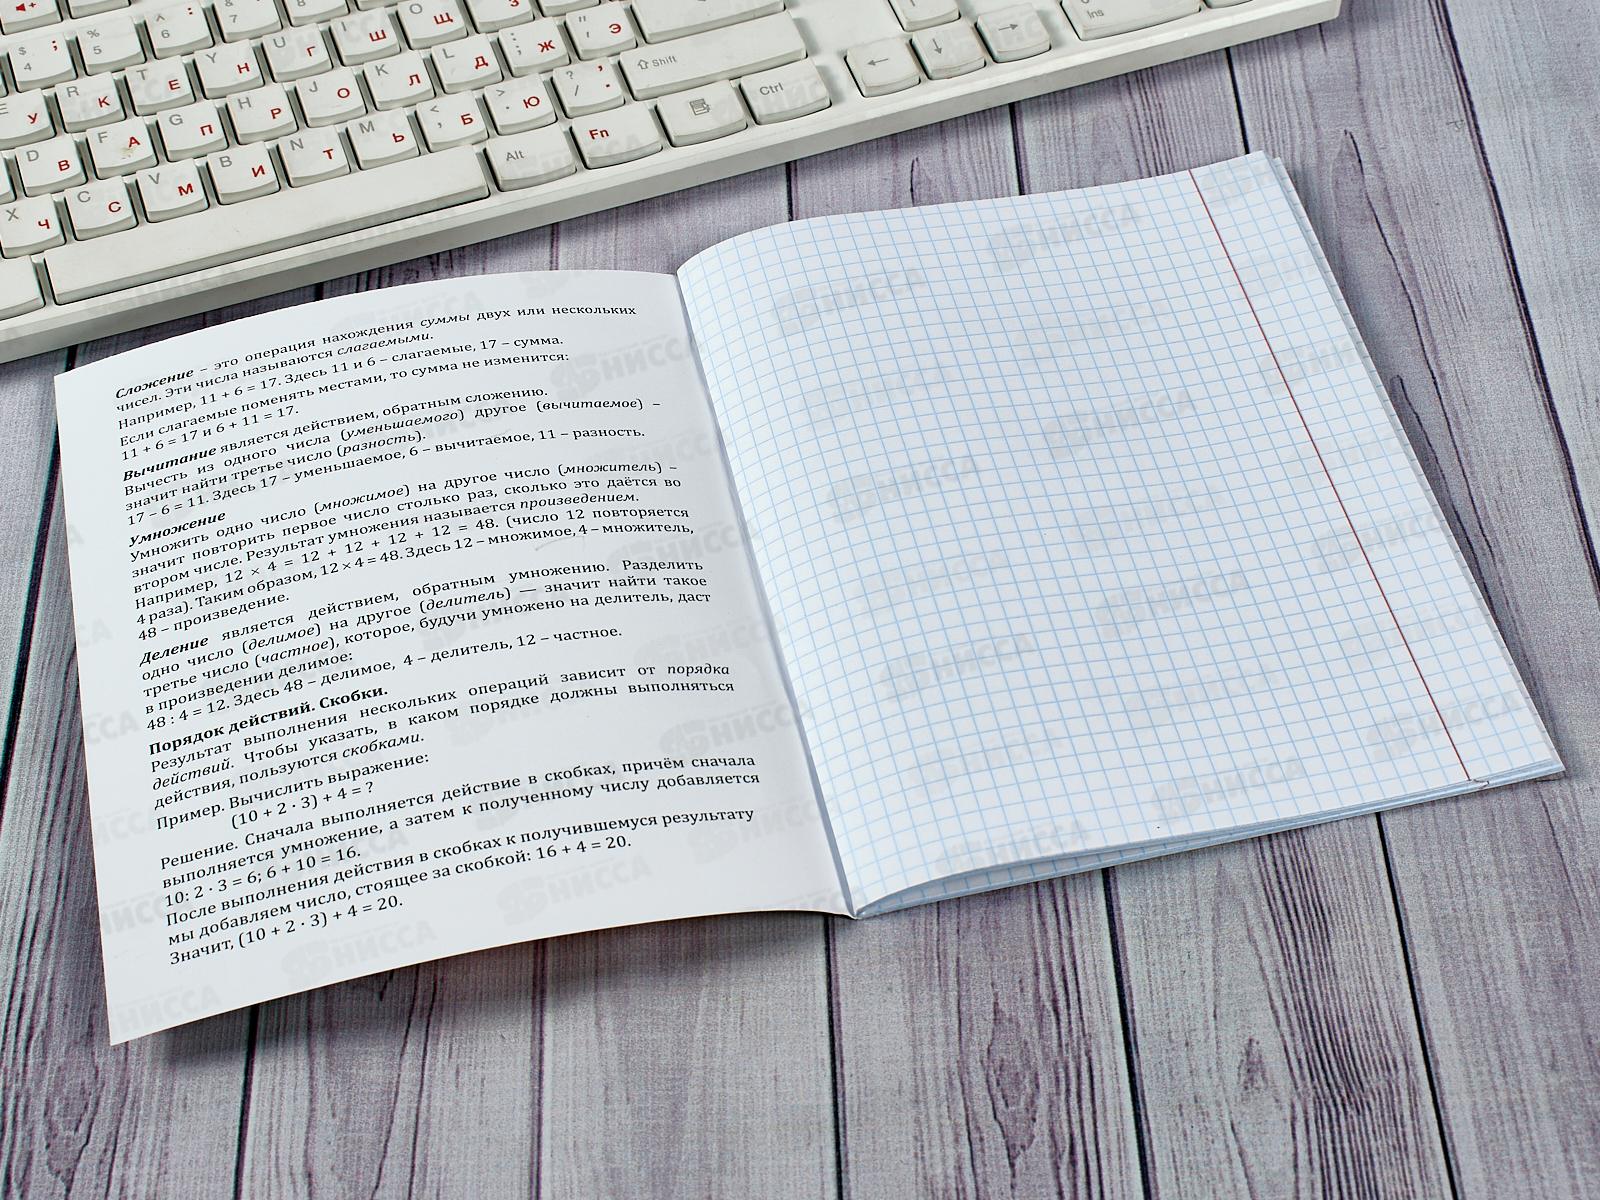 Сложение – это операция нахождения суммы двух или нескольких
чисел. Эти числа называются слагаемыми.
Например, 11 + 6 = 17. Здесь 11 и 6 – слагаемые, 17 – сумма.
Если слагаемые поменять местами, то сумма не изменится:
11 + 6 = 17 и 6 + 11 = 17.
Вычитание является действием, обратным сложению.
Вычесть из одного числа (уменьшаемого) другое (вычитаемое) –
значит найти третье число (разность).
17 – 6 = 11. Здесь 17 – уменьшаемое, 6 – вычитаемое, 11 – разность.
Умножение
Умножить одно число (множимое) на другое число (множитель) –
значит повторить первое число столько раз, сколько это даётся во
втором числе. Результат умножения называется произведением.
Например, 12 × 4 = 12 + 12 + 12 + 12 = 48. (число 12 повторяется
4 раза). Таким образом, 12 × 4 = 48. Здесь 12 – множимое, 4 – множитель,
48 – произведение.
Деление является действием, обратным умножению. Разделить
одно число (делимое) на другое (делитель) — значит найти такое
третье число (частное), которое, будучи умножено на делитель, даст
в произведении делимое:
48 : 4 = 12. Здесь 48 – делимое, 4 – делитель, 12 – частное.
Порядок действий. Скобки.
Результат выполнения нескольких операций зависит от порядка
действий. Чтобы указать, в каком порядке должны выполняться
действия, пользуются скобками.
Пример. Вычислить выражение:
(10 + 2 · 3) + 4 = ?
Решение. Сначала выполняется действие в скобках, причём сначала
выполняется умножение, а затем к полученному числу добавляется
10: 2 · 3 = 6; 6 + 10 = 16.
После выполнения действия в скобках к получившемуся результату
мы добавляем число, стоящее за скобкой: 16 + 4 = 20.
Значит, (10 + 2 · 3) + 4 = 20.
$ ; 4 % : 5 6 7 8
У R К T Е Y Н U Г I Ш O Щ З
D В F А G П H Р J О K Л L Д ; Ж " Э Shift
X Ч C С V М B И N Т M Ь < , Б > . Ю ? / . Fn Alt Ctrl
← ↓ → Ins
НИССА